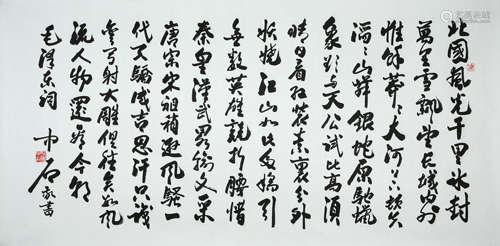 北國風光千里冰封
萬里雪飄望長城内外
惟餘莽々大河上下頓失
滔々山舞銀蛇原馳蠟
象欲与天公試比高須
晴日看紅裝素裹分外
妖嬈江山如此多嬌引
無數英雄競折腰惜
秦皇漢武略輸文采
唐宗宋祖稍遜風騷一
代天驕成吉思汗只識
彎弓射大雕俱往矣數風
流人物還看今朝
毛澤東詞
石敬書